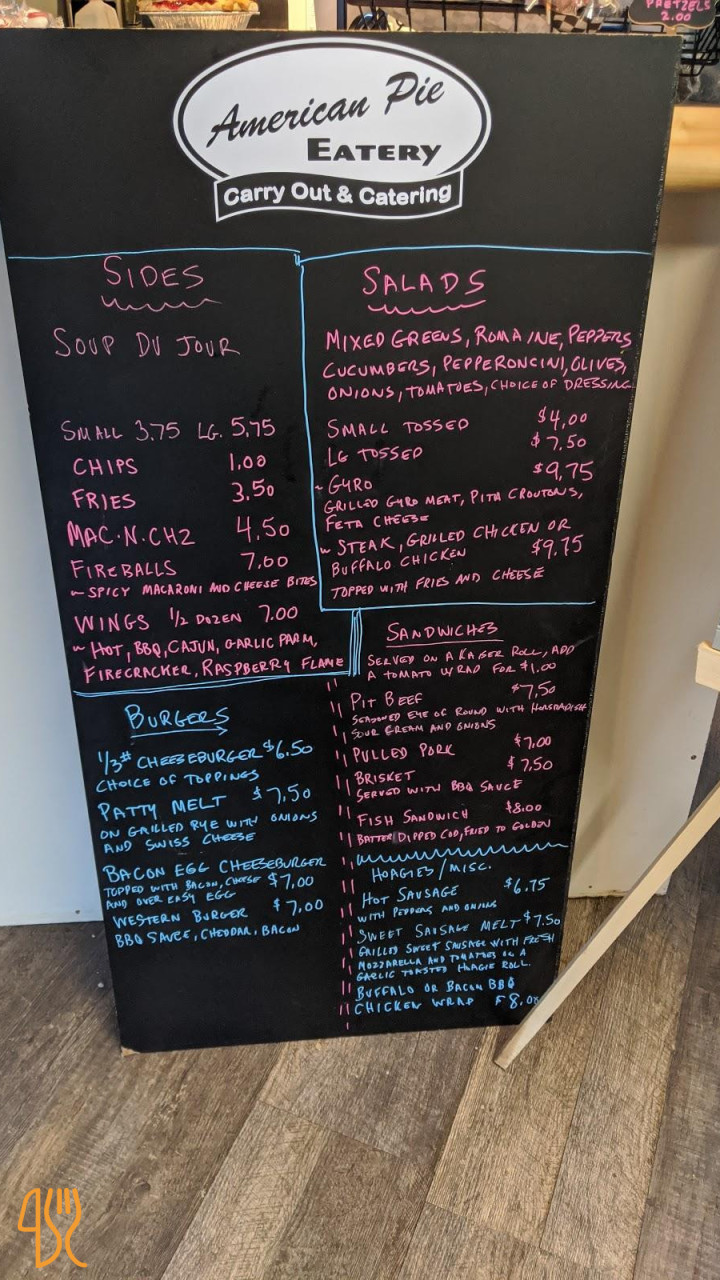 PRETZELS
2.00
American Pie
EATERY
Carry Out & Catering
SIDES
SOUP DU JOUR
SMALL 3.75 LG. 5.75
CHIPS 1.00
FRIES 3.50
MAC.N.CHZ 4.50
FIREBALLS 7.00
~ SPICY MACARONI AND CHEESE BITES
WINGS 1/2 DOZEN 7.00
~ HOT, BBQ, CAJUN, GARLIC PARM,
FIRECRACKER, RASPBERRY FLAME
SALADS
MIXED GREENS, ROMAINE, PEPPERS
CUCUMBERS, PEPPERONCINI, OLIVES,
ONIONS, TOMATOES, CHOICE OF DRESSING
SMALL TOSSED $4.00
LG TOSSED $7.50
~ GYRO $9.75
GRILLED GYRO MEAT, PITA CROUTONS,
FETA CHEESE
~ STEAK, GRILLED CHICKEN OR
BUFFALO CHICKEN $9.75
TOPPED WITH FRIES AND CHEESE
BURGERS
1/3# CHEESEBURGER $6.50
CHOICE OF TOPPINGS
PATTY MELT $7.50
ON GRILLED RYE WITH ONIONS
AND SWISS CHEESE
BACON EGG CHEESEBURGER
TOPPED WITH BACON, CHEESE $7.00
AND OVER EASY EGG
WESTERN BURGER $7.00
BBQ SAUCE, CHEDDAR, BACON
SANDWICHES
SERVED ON A KAISER ROLL, ADD
A TOMATO WRAP FOR $1.00
PIT BEEF $7.50
SEASONED EYE OF ROUND WITH HORSRADISH
SOUR CREAM AND ONIONS
PULLED PORK $7.00
BRISKET $7.50
SERVED WITH BBQ SAUCE
FISH SANDWICH $8.00
BATTER DIPPED COD, FRIED TO GOLDEN
HOAGIES/MISC.
HOT SAUSAGE $6.75
WITH PEPPERS AND ONIONS
SWEET SAUSAGE MELT $7.50
GRILLED SWEET SAUSAGE WITH FRESH
MOZZARELLA AND TOMATOES ON A
GARLIC TOASTED HOAGIE ROLL.
BUFFALO OR BACON BBQ
CHICKEN WRAP $8.00